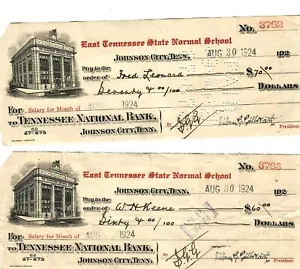 No. 3762
East Tennessee State Normal School
Johnson City, Tenn., AUG 30 1924 192
Pay to the order of Fred Leonard $70.00
Seventy & 00/100 Dollars
For Salary for Month of 1924
To Tennessee National Bank,
Johnson City, Tenn.
President.
No. 3763
East Tennessee State Normal School
Johnson City, Tenn., AUG 30 1924 192
Pay to the order of W H Keene $60.00
Sixty & 00/100 Dollars
For Salary for Month of AUG 1924
To Tennessee National Bank,
Johnson City, Tenn.
President.